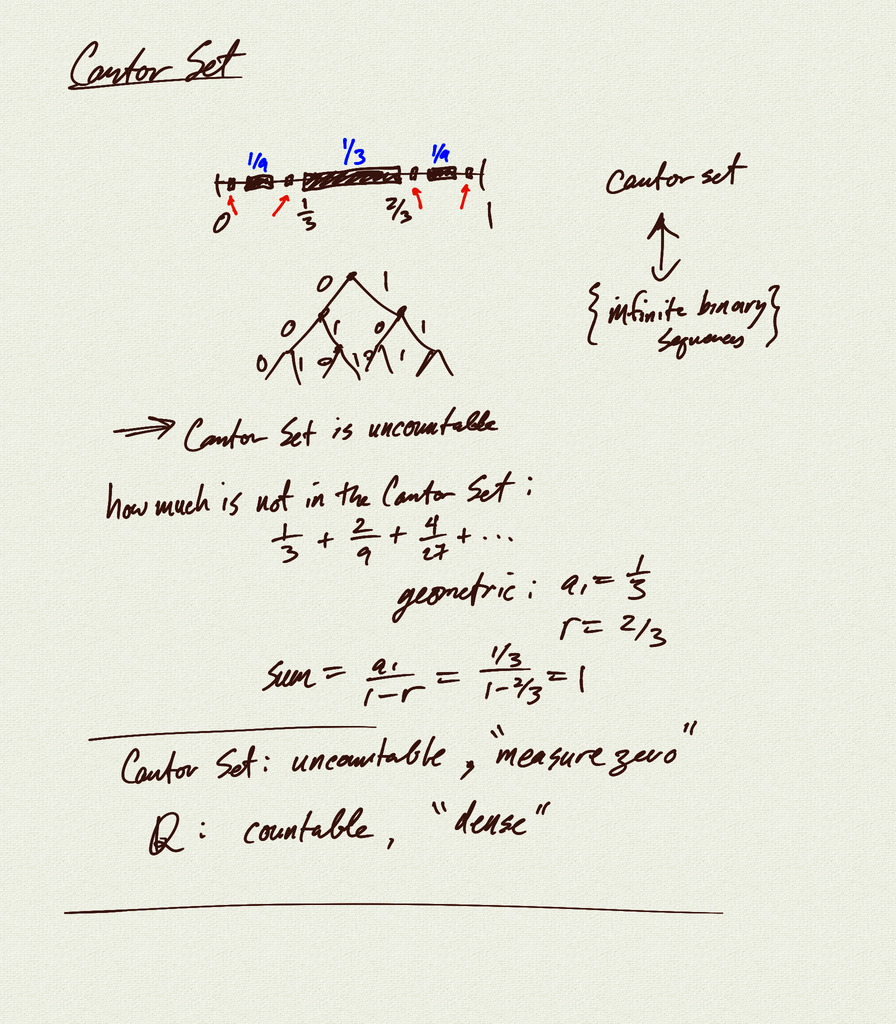 Cantor Set
1/9 1/3 1/9
0 1/3 2/3 1
cantor set
{infinite binary
sequences}
0 1
0 1 0 1
0 1 0 1 0 1
⇒ Cantor Set is uncountable
how much is not in the Cantor Set:
1/3 + 2/9 + 4/27 + ...
geometric: a₁ = 1/3
r = 2/3
sum = a₁/(1-r) = (1/3)/(1-2/3) = 1
Cantor Set: uncountable, "measure zero"
ℚ: countable, "dense"